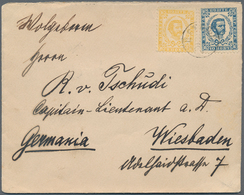 Wolgeborn
Herrn
R. v. Tschudi
Capitain-Lieutenant a. D.
Germania
Wiesbaden
Adelhaidstrasse 7